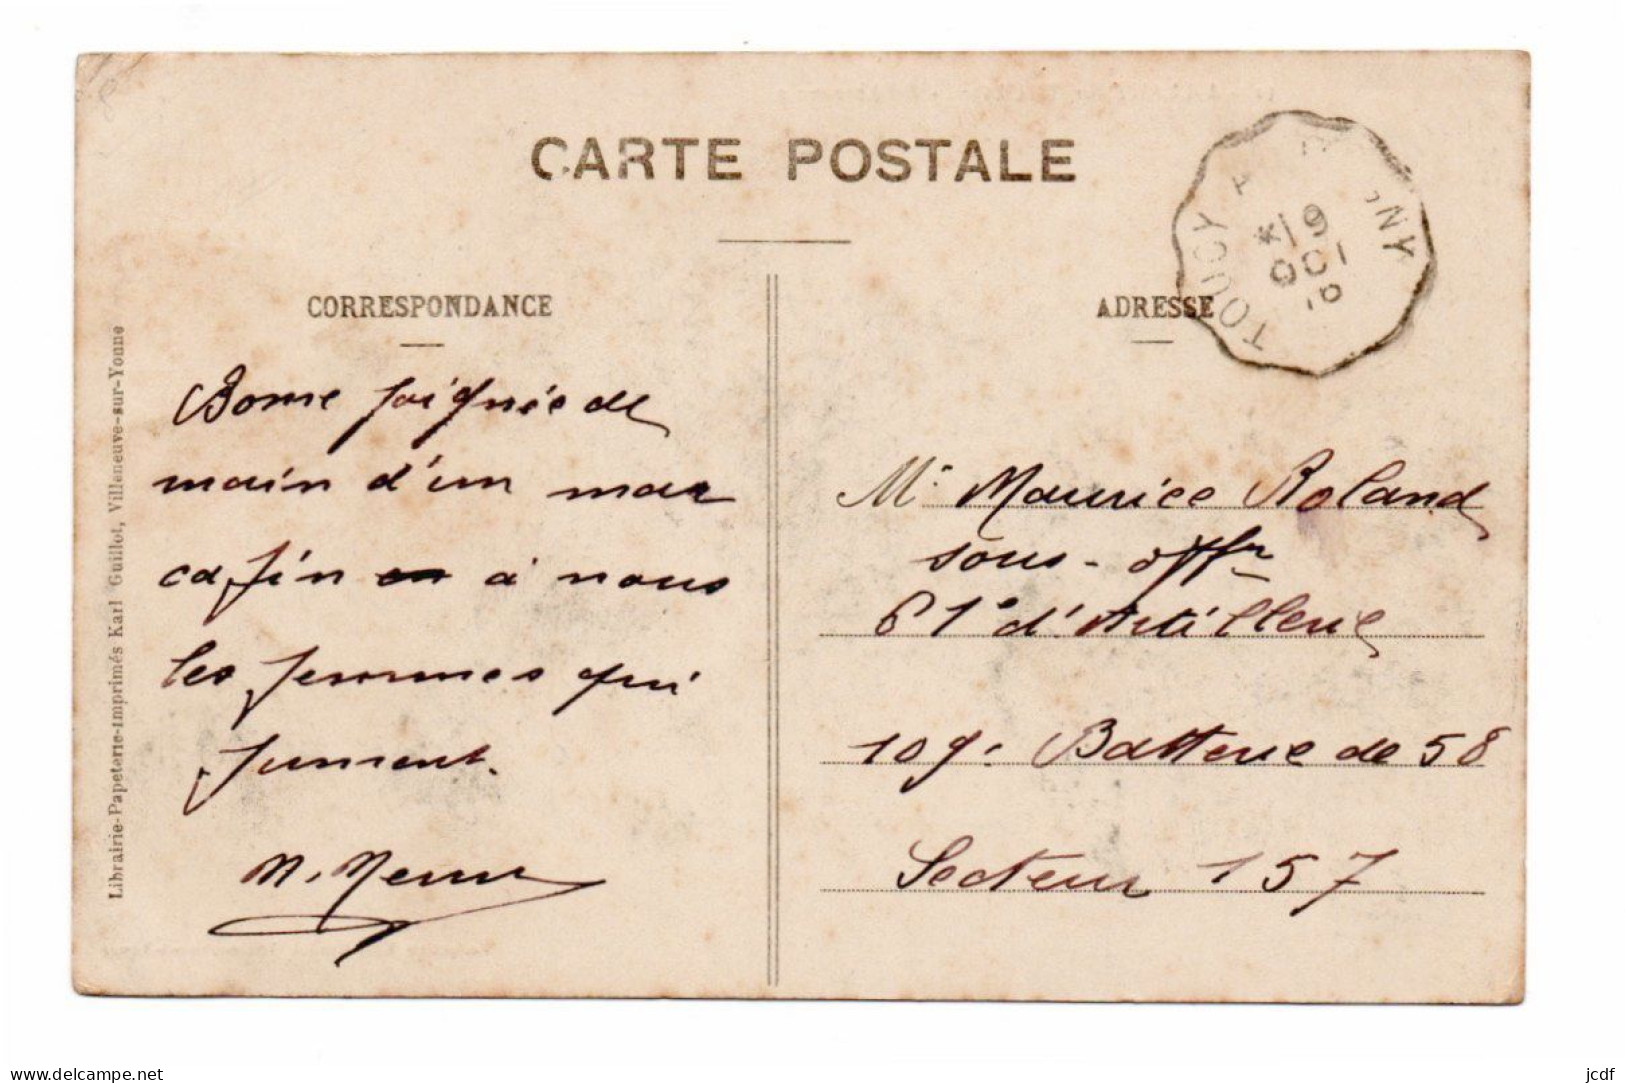 CARTE POSTALE
CORRESPONDANCE
ADRESSE
TOUCY A NY
*19
OCT
Bonne poignée de
main d'un
à nous
les femmes qui
fument.
Mr Maurice Roland
sous-offr
61e d'Artillerie
109e Batterie de 58
Secteur 157
Librairie-Papeterie-Imprimés Karl Guillot, Villeneuve-sur-Yonne
www.delcampe.net
jcdf